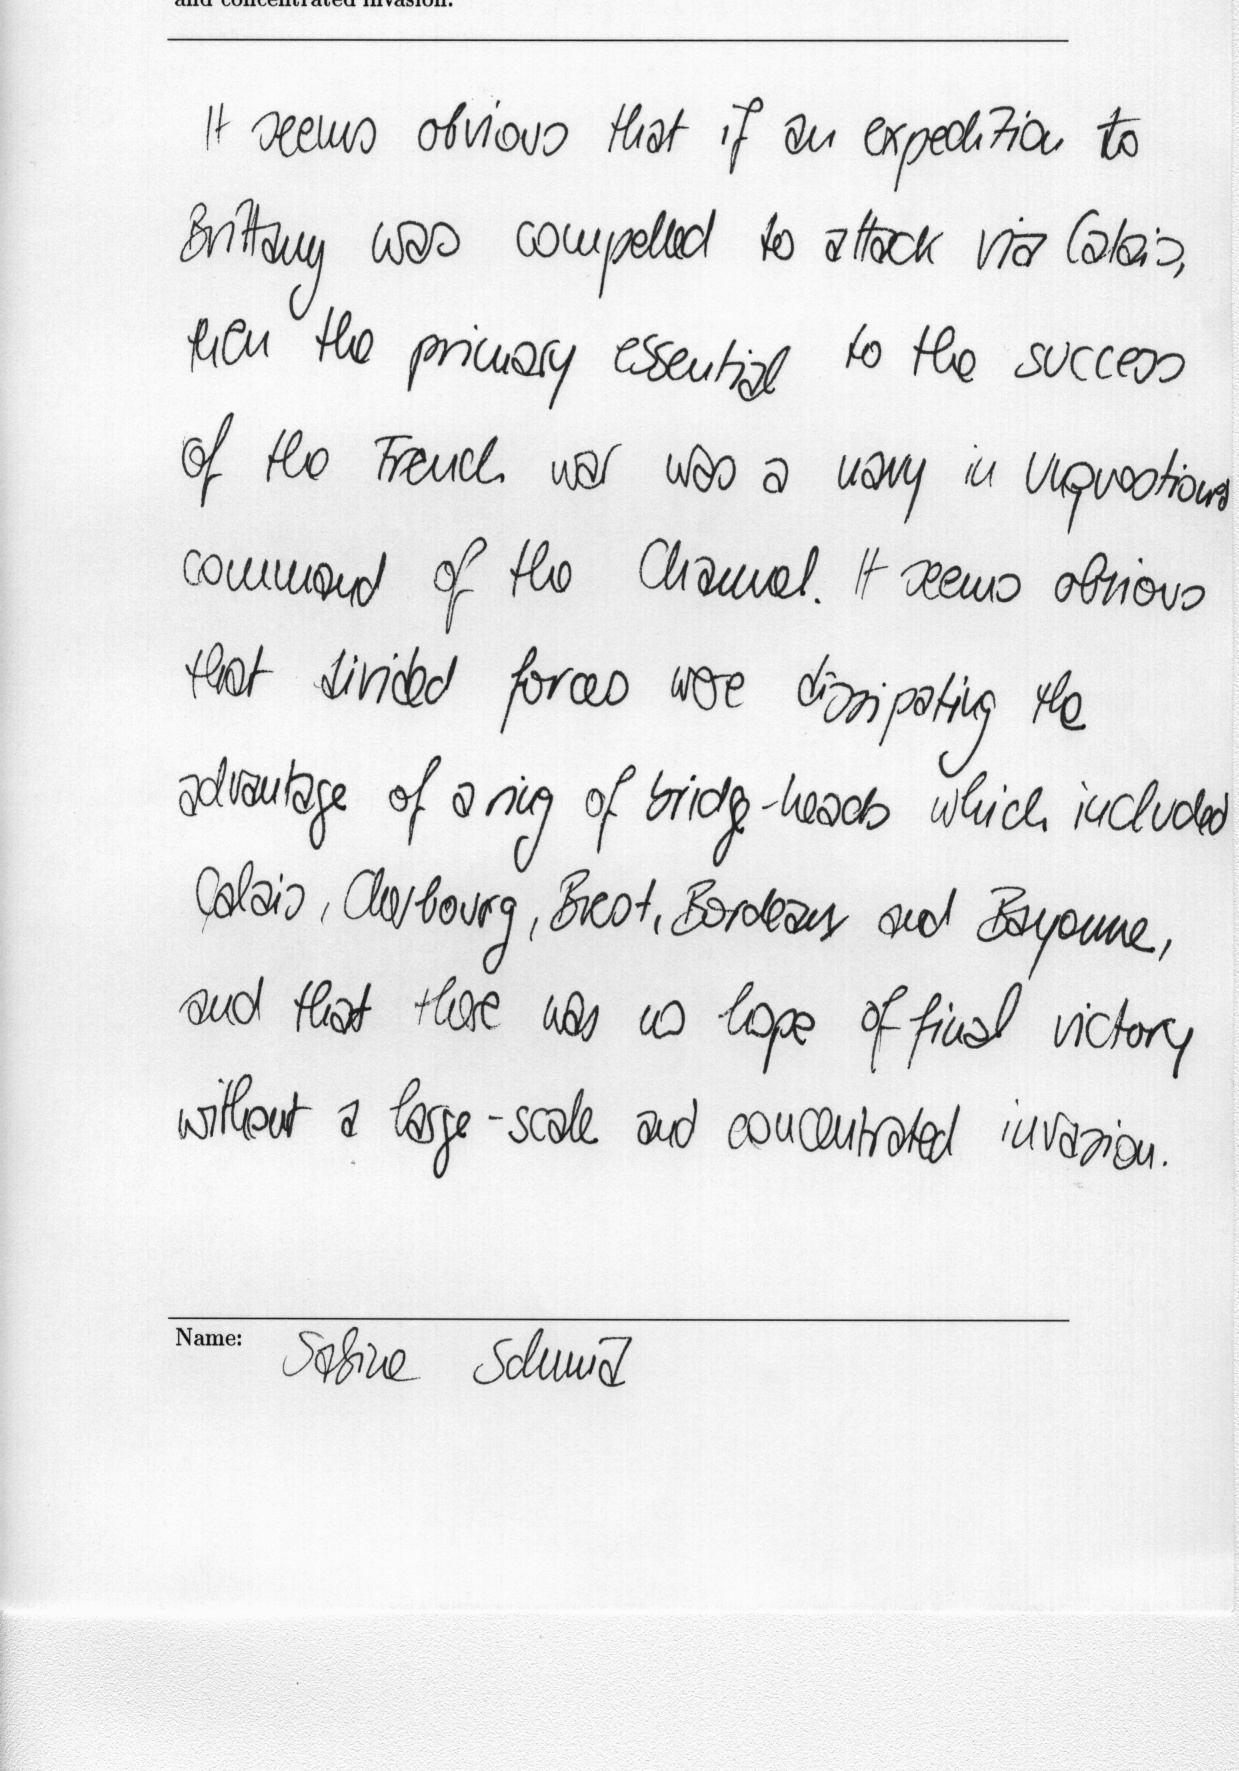 and concentrated invasion.
It seems obvious that if an expedition to
Brittany was compelled to attack via Calais,
then the primary essential to the success
of the French war was a navy in unquestioned
command of the Channel. It seems obvious
that divided forces were dissipating the
advantage of a ring of bridge-heads which included
Calais, Cherbourg, Brest, Bordeaux and Bayonne,
and that there was no hope of final victory
without a large-scale and concentrated invasion.
Name: Sabine Schmid